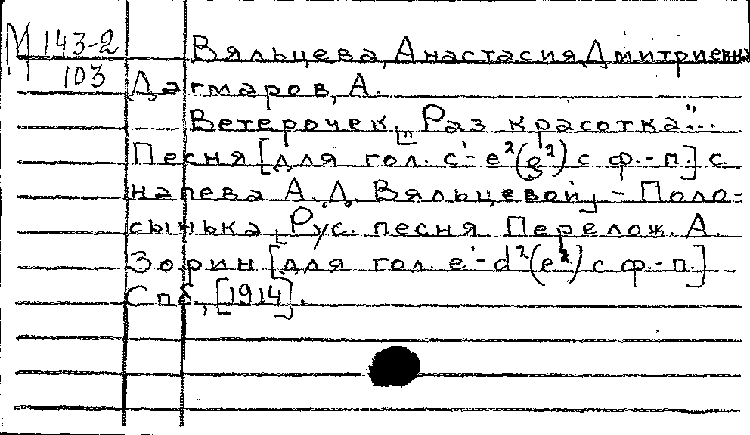 М 143-2 Вяльцева, Анастасия Дмитриевна
103 Дагмаров, А.
Ветерочек. ["Раз красотка"...
Песня [для гол. c¹-e²(g²) с ф.-п.] с
напева А. Д. Вяльцевой] - Поло-
сынька. [Рус. песня. Перелож. А.
Зорин [для гол. e¹-d²(e²) с ф.-п.]
Спб., [1914].